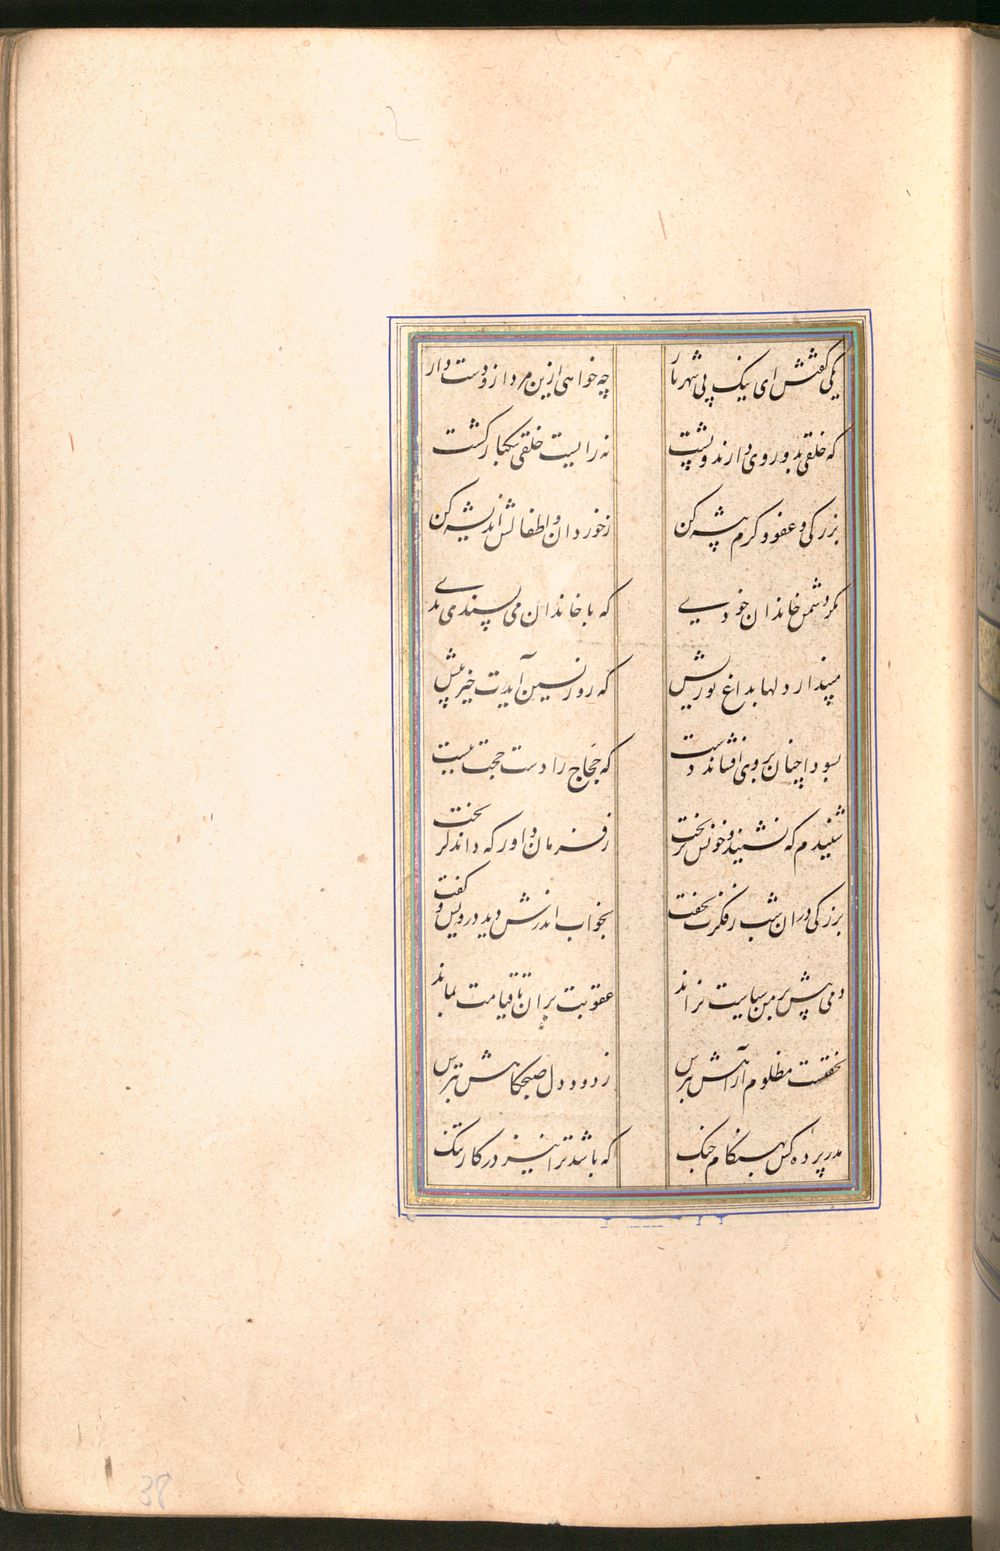 یکی گفتش ای نیک پی شهریار چه خواهی ازین مرد ازو دست دار
که خلقی بدو روی دارند و پشت نه رایست خلقی بیکبار کشت
بزرگی و عفو و کرم پیشه کن ز خوردان و اطفالش اندیشه کن
مگر دشمن خاندان خودی که با خاندان می پسندی بدی
مپندار دلها بداغ تو ریش که روز پسین آیدت خیر پیش
که حجاج را دست حجت ببست
شنیدم که نشنید و خونش بریخت ز فرمان داور که داند گریخت
بزرگی دران شب ز فکرت بخفت بخواب اندرش دید درویش و گفت
دمی پیش بر من سیاست نراند عقوبت بران تا قیامت بماند
نخفتست مظلوم از آهش بترس ز دود دل صبحگاهش بترس
مدر پرده کس بهنگام جنگ که باشد ترا نیز در کار ننگ
38